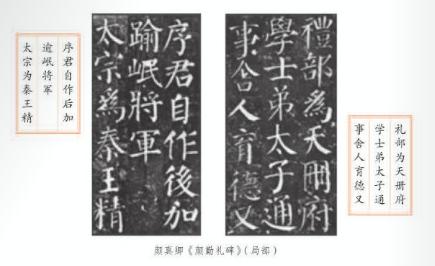 禮部爲天冊府
學士弟太子通
事舍人育德又
礼部为天册府
学士弟太子通
事舍人育德又
序君自作後加
踰岷將軍
太宗爲秦王精
序君自作后加
逾岷将军
太宗为秦王精
颜真卿《颜勤礼碑》（局部）